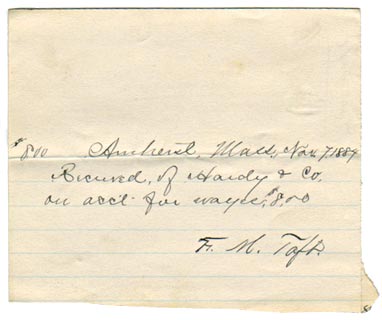 $8.00 Amherst, Mass, Nov. 7, 1889
Received, of Hardy & Co.
on acct. for wages, $8.00
F. M. Taft.